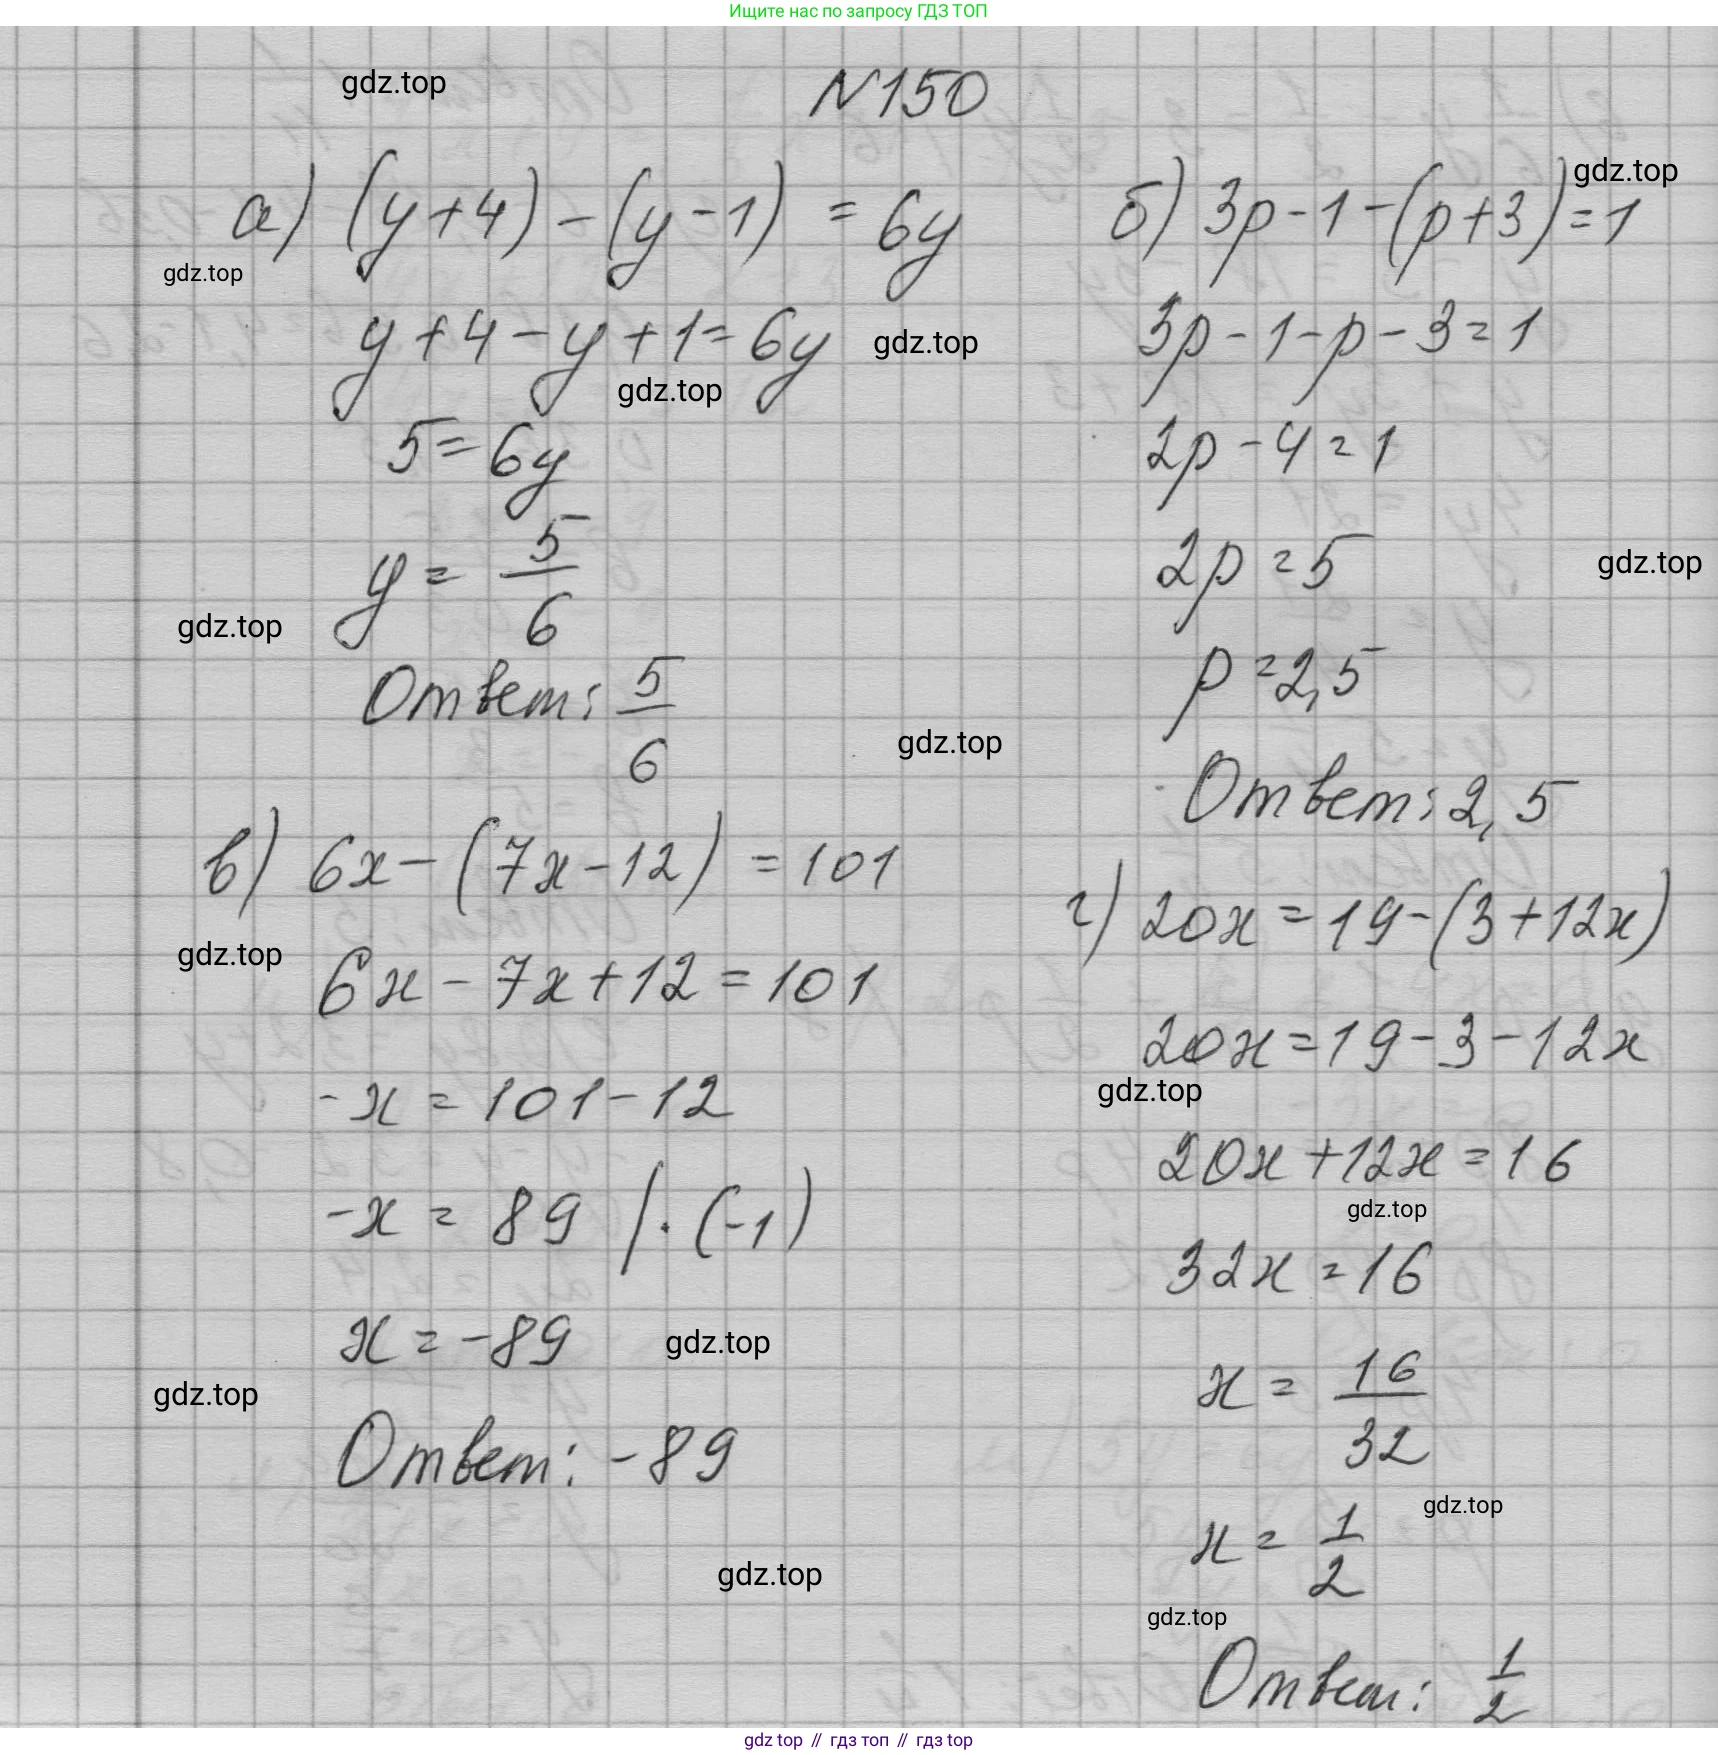 Ищите нас по запросу ГДЗ ТОП
gdz.top
N150
а) (y+4)-(y-1)=6y
gdz.top
y+4-y+1=6y
gdz.top
gdz.top
5=6y
y=5/6
gdz.top
Ответ: 5/6
gdz.top
б) 3p-1-(p+3)=1
gdz.top
3p-1-p-3=1
2p-4=1
2p=5
gdz.top
p=2,5
Ответ: 2,5
в) 6x-(7x-12)=101
gdz.top
6x-7x+12=101
-x=101-12
-x=89 /·(-1)
x=-89
gdz.top
gdz.top
Ответ: -89
gdz.top
г) 20x=19-(3+12x)
20x=19-3-12x
gdz.top
20x+12x=16
gdz.top
32x=16
x=16/32
gdz.top
x=1/2
gdz.top
Ответ: 1/2
gdz top // гдз топ // гдз top